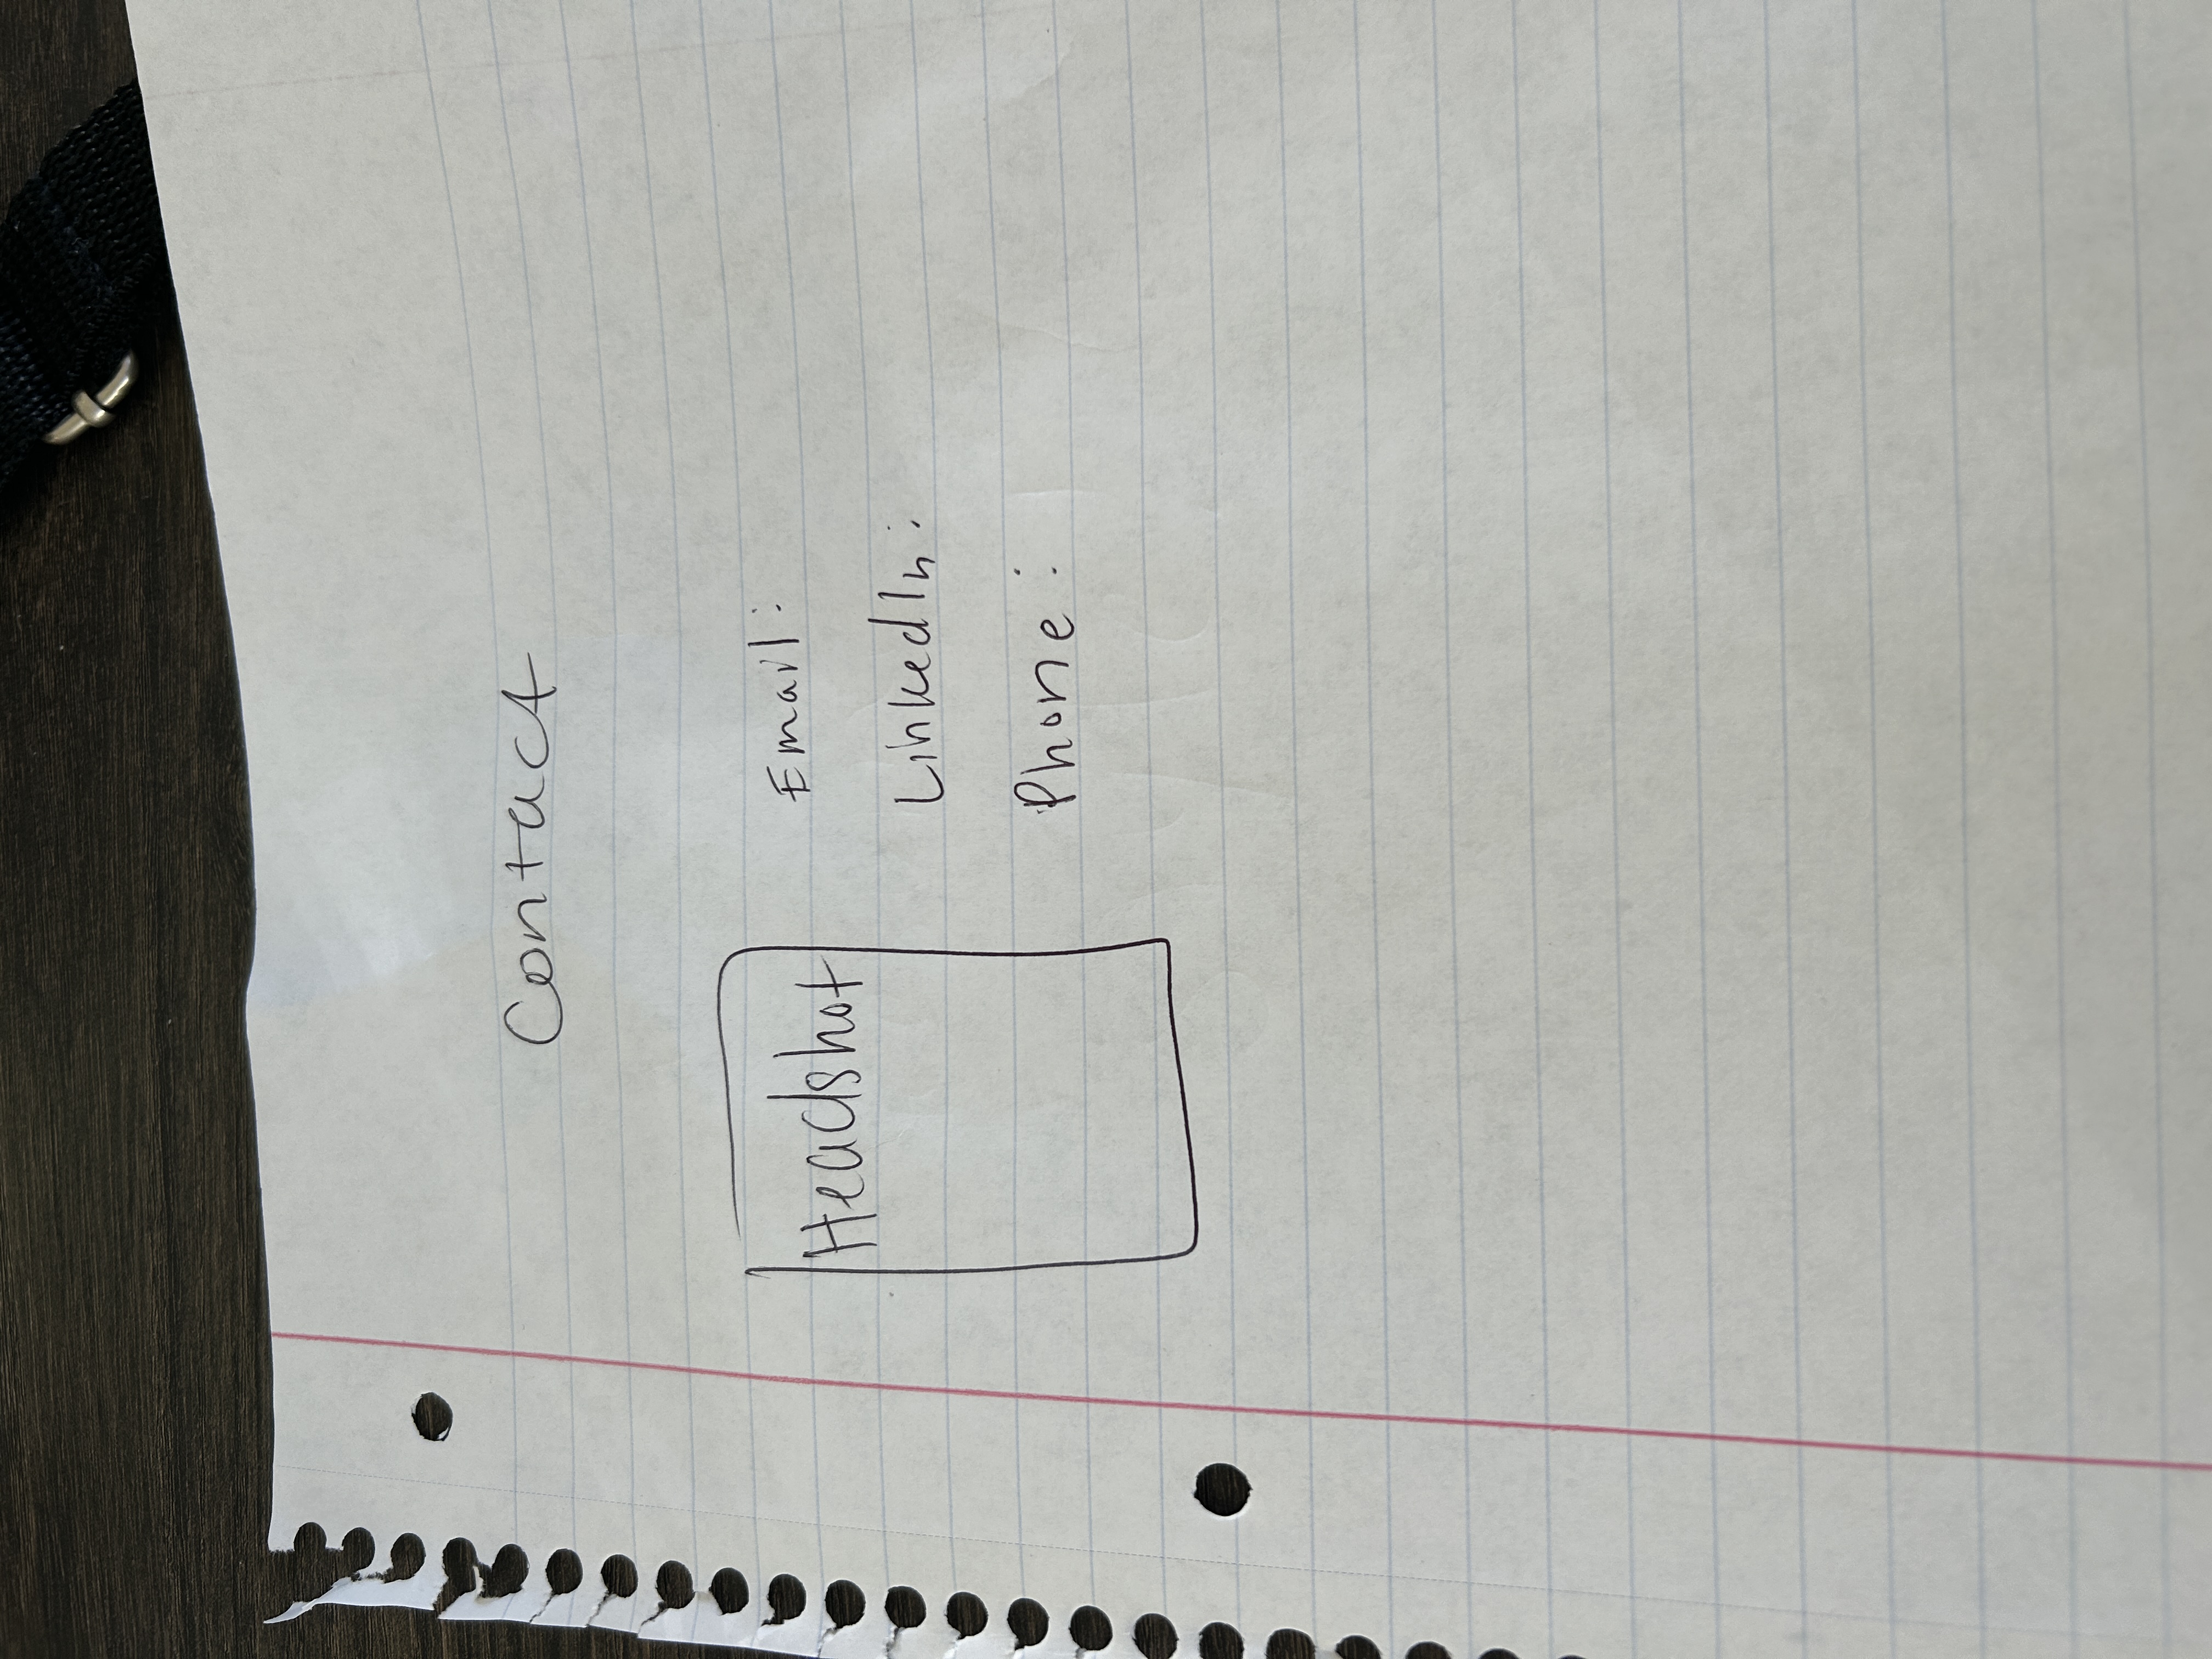 Contact
Headshot
Email:
LinkedIn:
Phone: